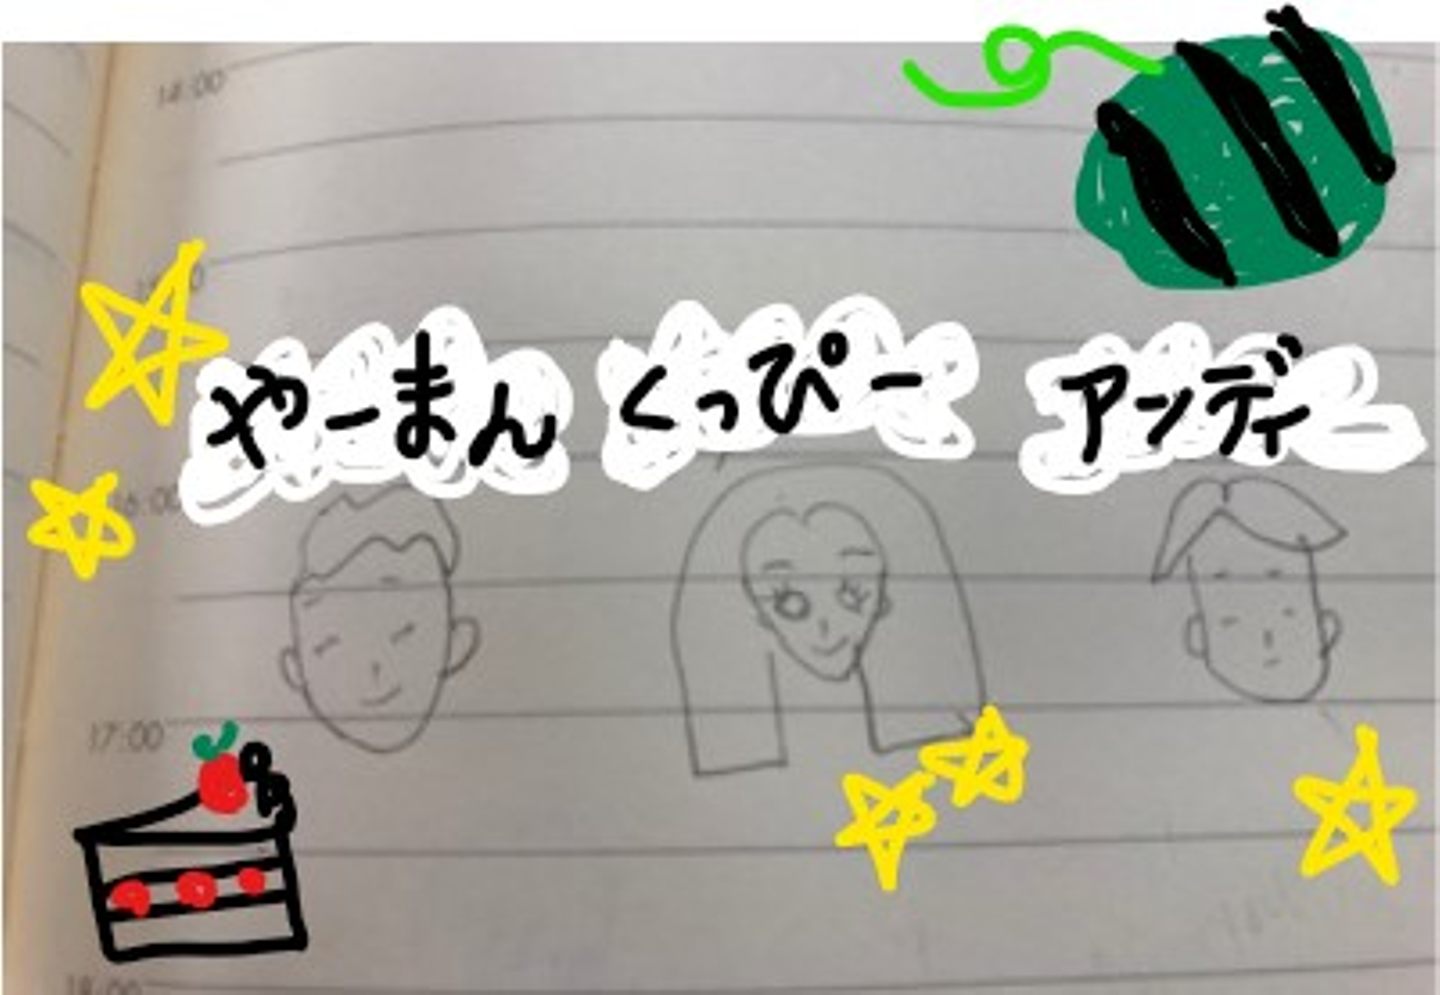 14:00
やーまん くっぴー アンディー
16:00
17:00
18:00